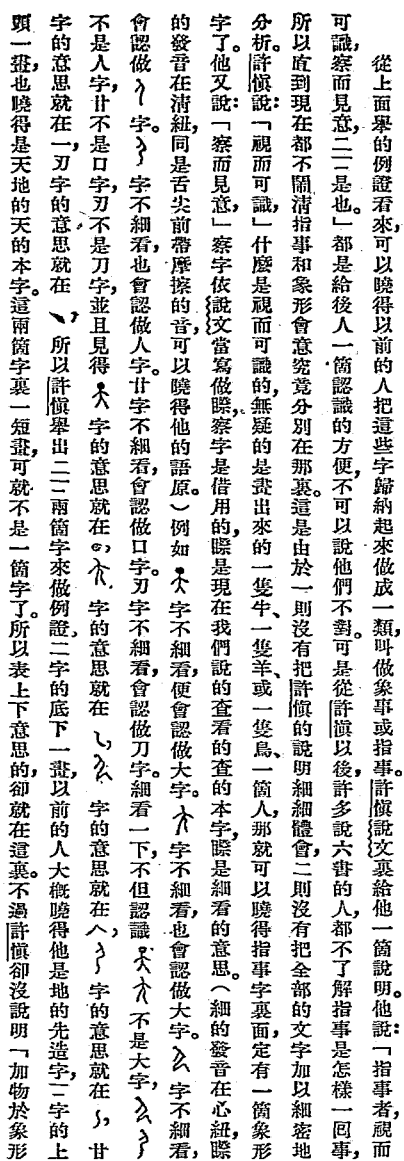 從上面舉的例證看來,可以曉得以前的人把這些字歸納起來做成一類,叫做象事或指事。許愼說文裏給他一箇說明。他說:「指事者,視而
可識,察而見意,𠄞𠄟是也。」都是給後人一箇認識的方便,不可以說他們不對。可是從許愼以後,許多說六書的人,都不了解指事是怎樣一回事,
所以直到現在都不鬧淸指事和象形會意究竟分別在那裏。這是由於一則沒有把許愼的說明細細體會,二則沒有把全部的文字加以細密地
分析。許愼說:「視而可識」什麽是視而可識的,無疑的是畫出來的一隻牛、一隻羊、或一隻鳥、一箇人,那就可以曉得指事字裏面,定有一箇象形
字了。他又說:「察而見意,」察字依說文當寫做䁃,察字是借用的,䁃是現在我們說的查看的查的本字,䁃是細看的意思。(細的發音在心紐,䁃
的發音在淸紐,同是舌尖前帶摩擦的音,可以曉得他的語原。)例如 字不細看,便會認做大字。 字不細看,也會認做大字。 字不細看,
會認做 字。 字不細看,也會認做人字。廿字不細看,會認做口字。刃字不細看,會認做刀字。細看一下,不但認識 不是大字,
不是人字,廿不是口字,刃不是刀字,並且見得 字的意思就在 字的意思就在 字的意思就在 字的意思就在 廿
字的意思就在一,刃字的意思就在 所以許愼舉出𠄞𠄟兩箇字來做例證,𠄞字的底下一畫,以前的人大槪曉得他是地的先造字,𠄟字的上
頭一畫,也曉得是天地的天的本字。這兩箇字裏一短畫,可就不是一箇字了。所以表上下意思的,卻就在這裏。不過許愼卻沒說明「加物於象形